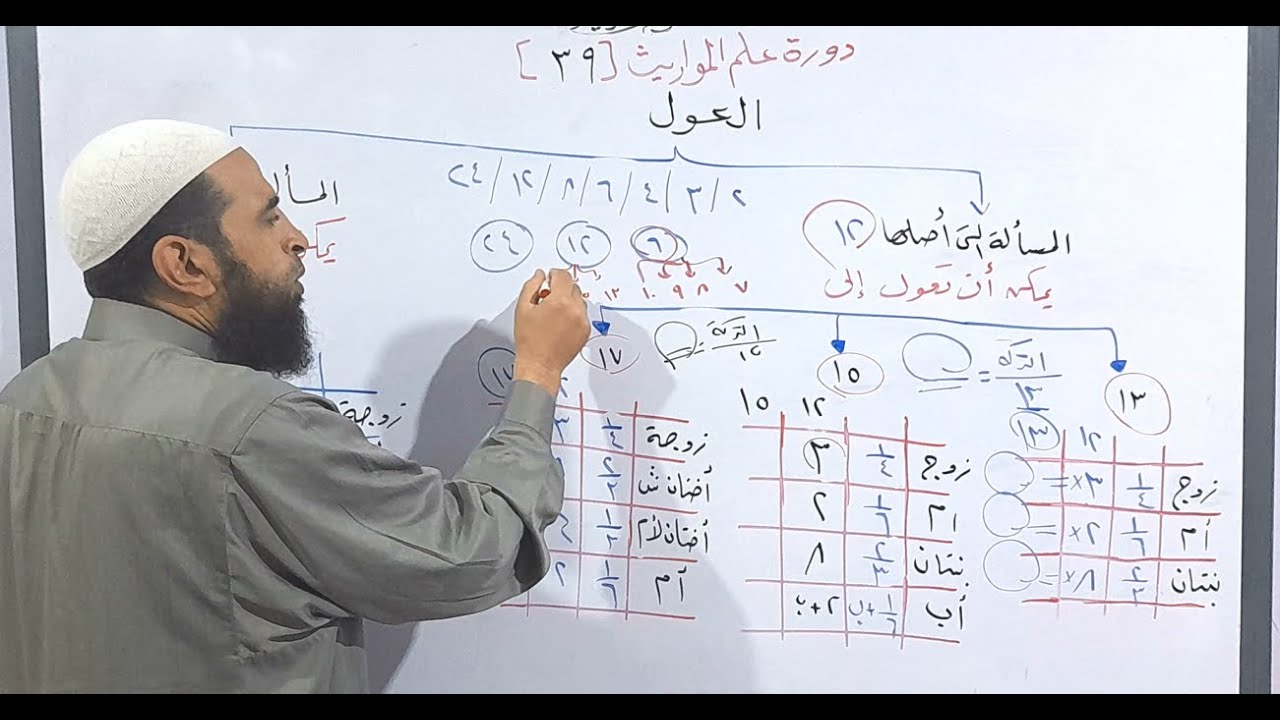 دورة علم المواريث [٣٩]
العول
٢ / ٣ / ٤ / ٦ / ٨ / ١٢ / ٢٤
٦ ١٢ ٢٤
٧ ٨ ٩ ١٠ ١٣
المسألة التي أصلها ١٢
يمكن أن تعول إلى
المسأ
يمكن
١٣ ١٥ ١٧
التركة
١٣
=
التركة
=
١٢ ١٣
زوج ١/٤ ٣× =
أم ١/٦ ٢× =
بنتان ٢/٣ ٨× =
١٢ ١٥
زوج ١/٤ ٣
أم ١/٦ ٢
بنتان ٢/٣ ٨
أب ١/٦+ب ٢+ب
١٧
زوجة ١/٤ ٣
أختان ش ٢/٣
أختان لأم ١/٣
أم ١/٦ ٢
زوجة